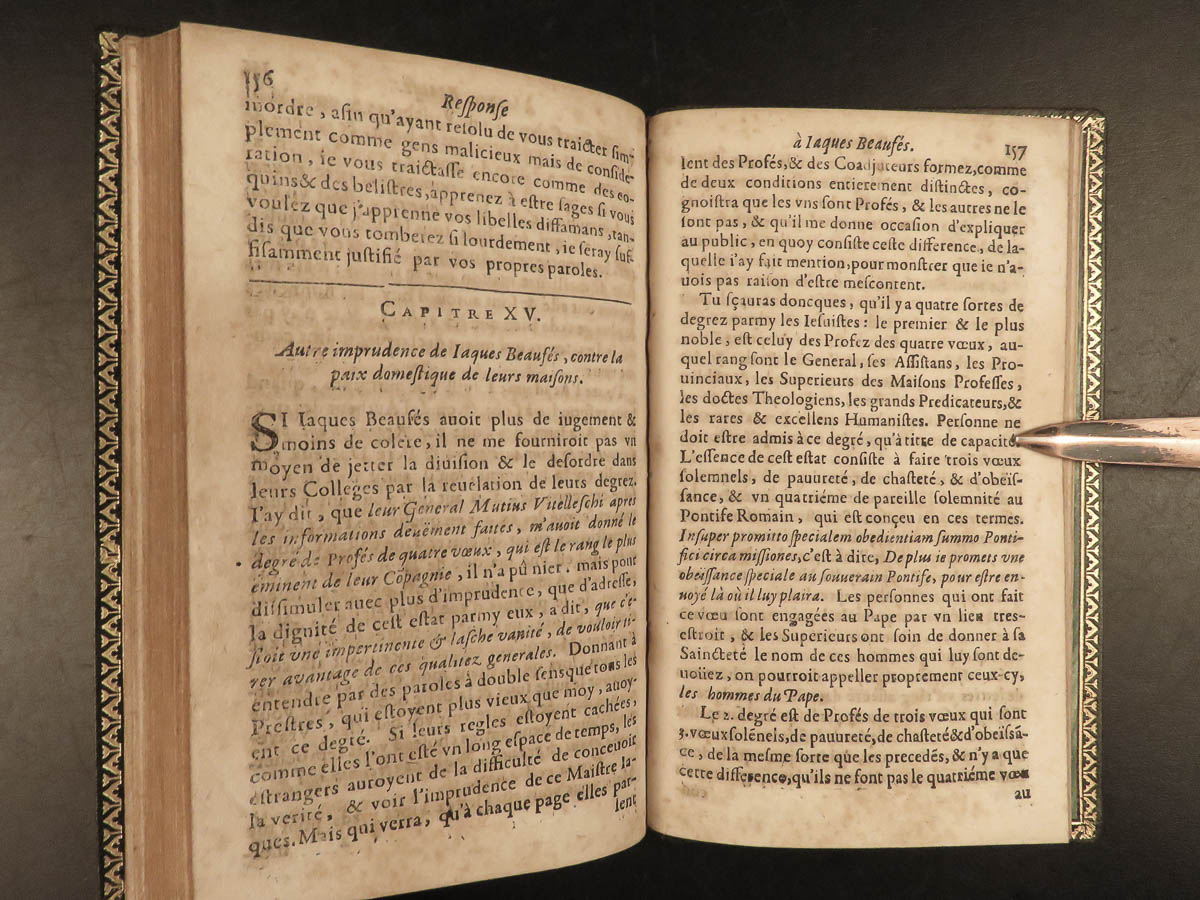 156
Response
mordre, afin qu'ayant resolu de vous traicter sim-
plement comme gens malicieux mais de conside-
ration, ie vous traictasse encore comme des co-
quins & des belistres, apprenez à estre sages si vous
voulez que j'apprenne vos libelles diffamans, tan-
dis que vous tomberez si lourdement, ie seray suf-
fisamment justifié par vos propres paroles.
CAPITRE XV.
Autre imprudence de Iaques Beaufés, contre la
paix domestique de leurs maisons.
SI Iaques Beaufés auoit plus de iugement &
moins de colere, il ne me fourniroit pas vn
moyen de jetter la diuision & le desordre dans
leurs Colleges par la reuelation de leurs degrez.
I'ay dit, que leur General Mutius Vitelleschi apres
les informations deuëment faites, m'auoit donné le
degré de Profés de quatre vœux, qui est le rang le plus
éminent de leur Cõpagnie, il n'a pû nier. mais pour
dissimuler auec plus d'imprudence, que d'adresse,
la dignité de cest estat parmy eux, a dit, que c'e-
stoit vne impertinente & lasche vanité, de vouloir ti-
rer avantage de ces qualitez generales. Donnant à
entendre par des paroles à double sens que tous les
Prestres, qui estoyent plus vieux que moy, auoy-
ent ce degré. Si leurs regles estoyent cachées,
comme elles l'ont esté vn long espace de temps, les
estrangers auroyent de la difficulté de conceuoir
la verité, & voir l'imprudence de ce Maistre Ia-
ques. Mais qui verra, qu'à chaque page elles par-
lent
à Iaques Beaufés.
157
lent des Profés, & des Coadjuteurs formez, comme
de deux conditions entierement distinctes, co-
gnoistra que les vns sont Profés, & les autres ne le
sont pas, & qu'il me donne occasion d'expliquer
au public, en quoy consiste ceste difference, de la-
quelle i'ay fait mention, pour monstrer que ie n'a-
uois pas raison d'estre mescontent.
Tu sçauras doncques, qu'il y a quatre sortes de
degrez parmy les Iesuistes: le premier & le plus
noble, est celuy des Profez des quatre vœux, au-
quel rang sont le General, ses Assistans, les Pro-
uinciaux, les Superieurs des Maisons Professes,
les doctes Theologiens, les grands Predicateurs, &
les rares & excellens Humanistes. Personne ne
doit estre admis à ce degré, qu'à titre de capacité.
L'essence de cest estat consiste à faire trois vœux
solemnels, de pauureté, de chasteté, & d'obeïs-
sance, & vn quatriéme de pareille solemnité au
Pontife Romain, qui est conçeu en ces termes.
Insuper promitto specialem obedientiam summo Ponti-
fici circa missiones, c'est à dire, De plus ie promets vne
obeïssance speciale au souuerain Pontife, pour estre en-
uoyé là où il luy plaira. Les personnes qui ont fait
ce vœu sont engagées au Pape par vn lien tres-
estroit, & les Superieurs ont soin de donner à sa
Saincteté le nom de ces hommes qui luy sont de-
uoüez, on pourroit appeller proprement ceux-cy,
les hommes du Pape.
Le 2. degré est de Profés de trois vœux qui sont
3. vœux solẽnels, de pauureté, de chasteté & d'obeïssã-
ce, de la mesme sorte que les precedẽs, & n'y a que
cette difference, qu'ils ne font pas le quatriéme vœu
au